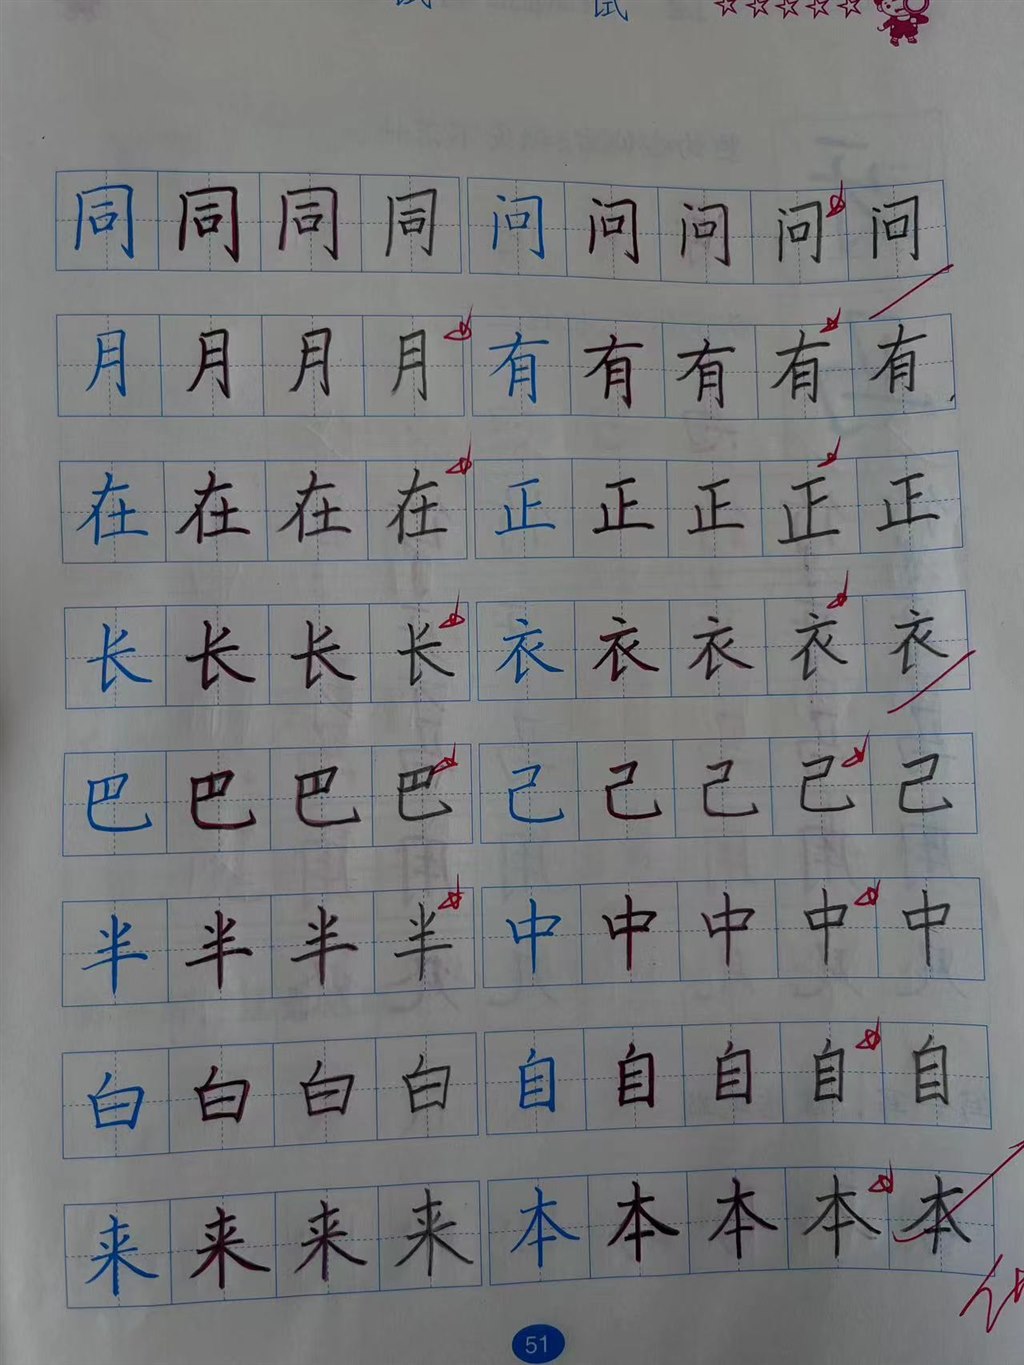 试 试 ☆☆☆☆☆
同 同 同 同 问 问 问 问 问
月 月 月 月 有 有 有 有 有
在 在 在 在 正 正 正 正 正
长 长 长 长 衣 衣 衣 衣 衣
巴 巴 巴 巴 己 己 己 己 己
半 半 半 半 中 中 中 中 中
白 白 白 白 自 自 自 自 自
来 来 来 来 本 本 本 本 本
51